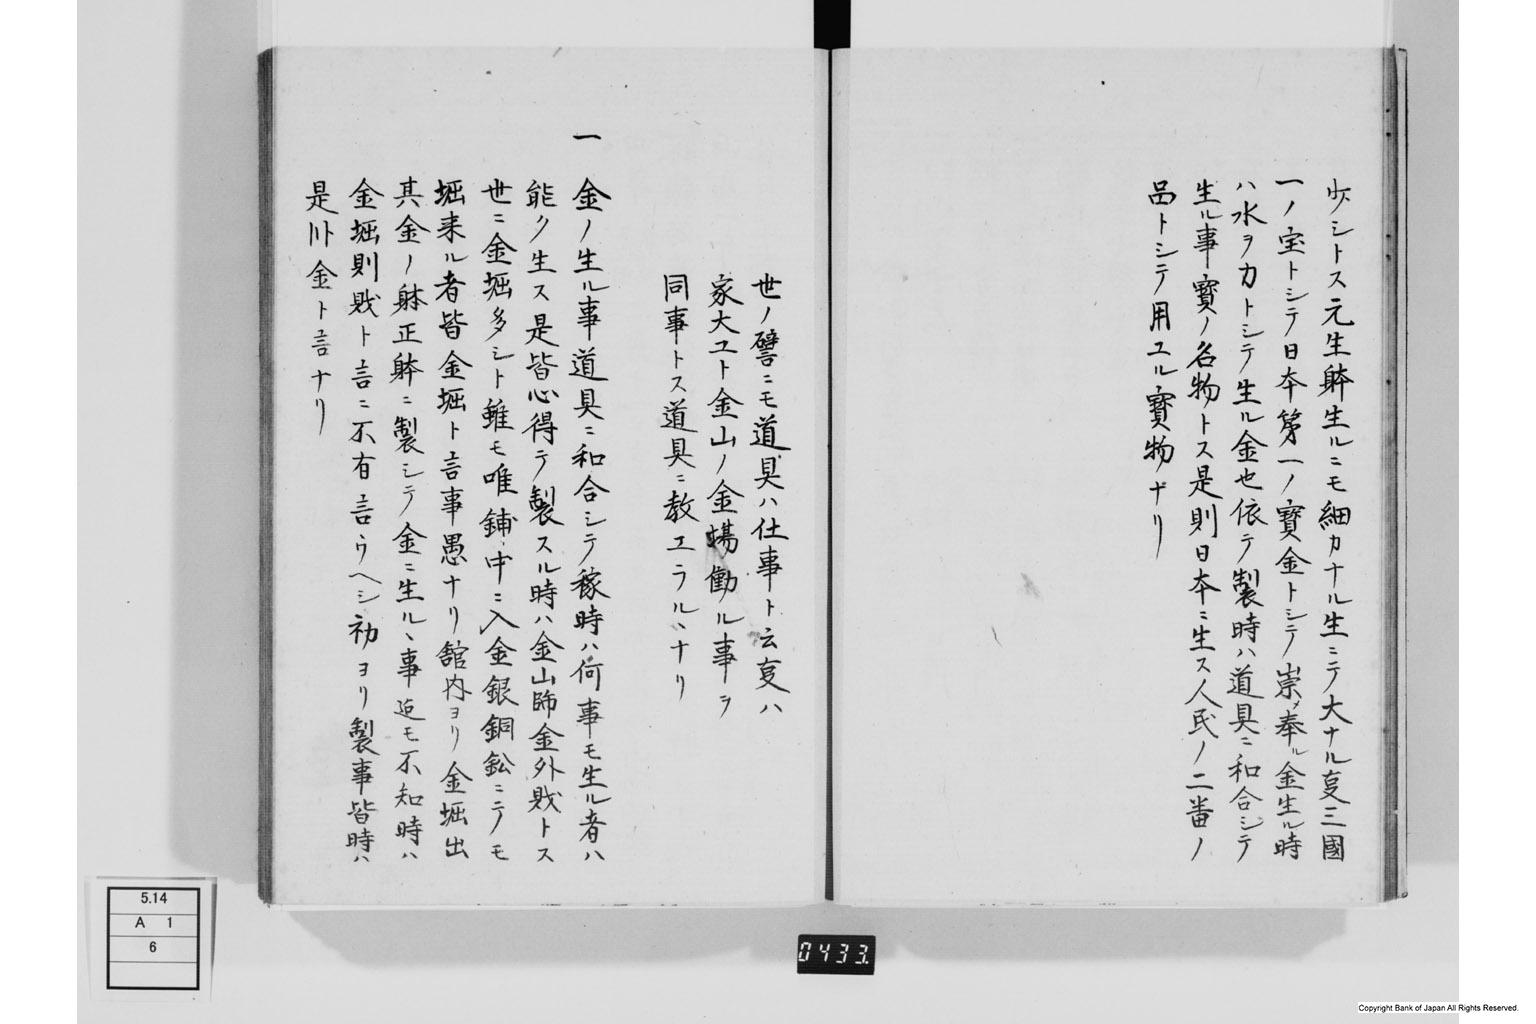 少シトス元生躰生ルニモ細カナル生ニテ大ナル㕝三國
一ノ宝トシテ日本第一ノ寶金トシテ崇メ奉ル金生ル時
ハ水ヲカトシテ生ル金也依テ製時ハ道具ニ和合シテ
生ル事寶ノ名物トス是則日本ニ生ス人民ノ二番ノ
品トシテ用ユル寶物ナリ
世ノ譬ニモ道具ハ仕事ト云㕝ハ
家大エト金山ノ金場働ル事ラ
同事トス道具ニ教エラルヽナリ
一 金ノ生ル事道具ニ和合シテ稼時ハ何事モ生ル者ハ
能ク生ス是皆心得テ製スル時ハ金山師金外戝トス
世ニ金堀多シト雖モ唯鋪中ニ入金銀銅鈆ニテモ
堀来ル者皆金堀ト言事愚ナリ舘内ヨリ金堀出
其金ノ躰正躰ニ製シテ金ニ生ルヽ事迠モ不知時ハ
金堀則戝ト言ニ不有言ウヘシ初ヨリ製事皆時ハ
是川金ト言ナリ
5.14
A 1
6
0433
Copyright Bank of Japan All Rights Reserved.